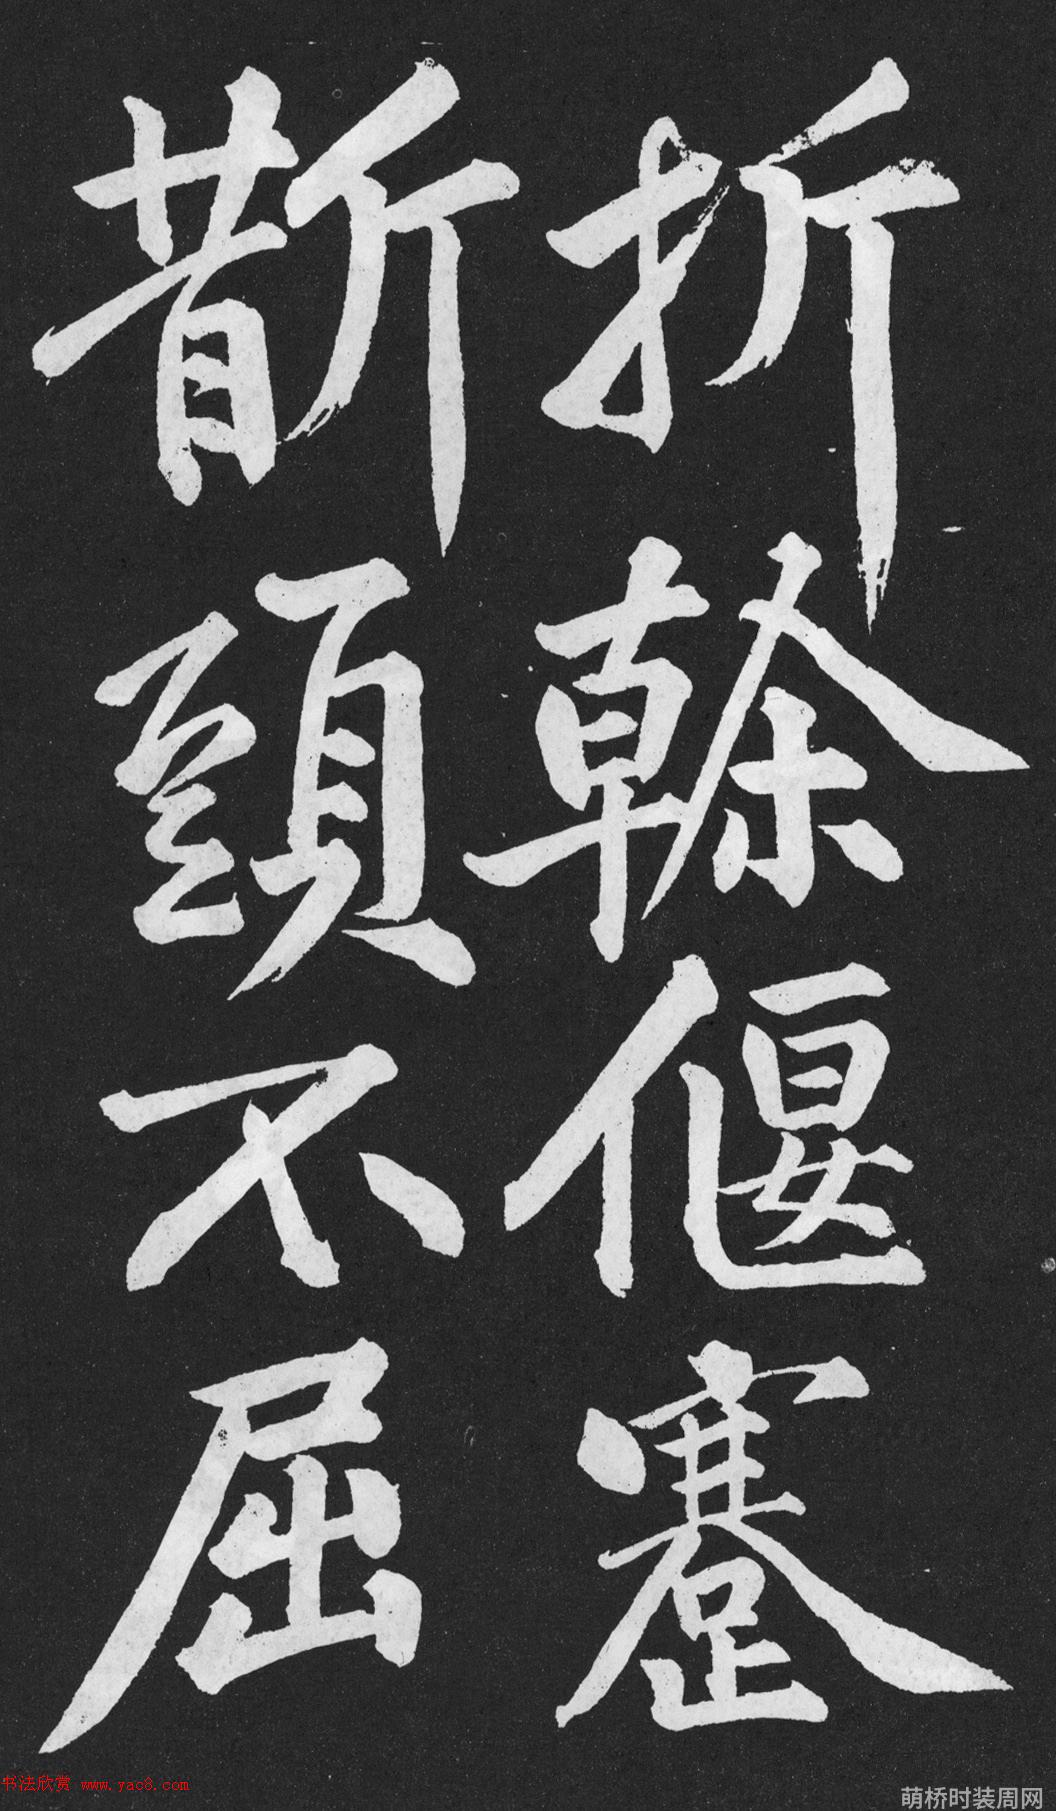 折榦偃蹇
斮頭不屈
书法欣赏 www.yac8.com
萌桥时装周网